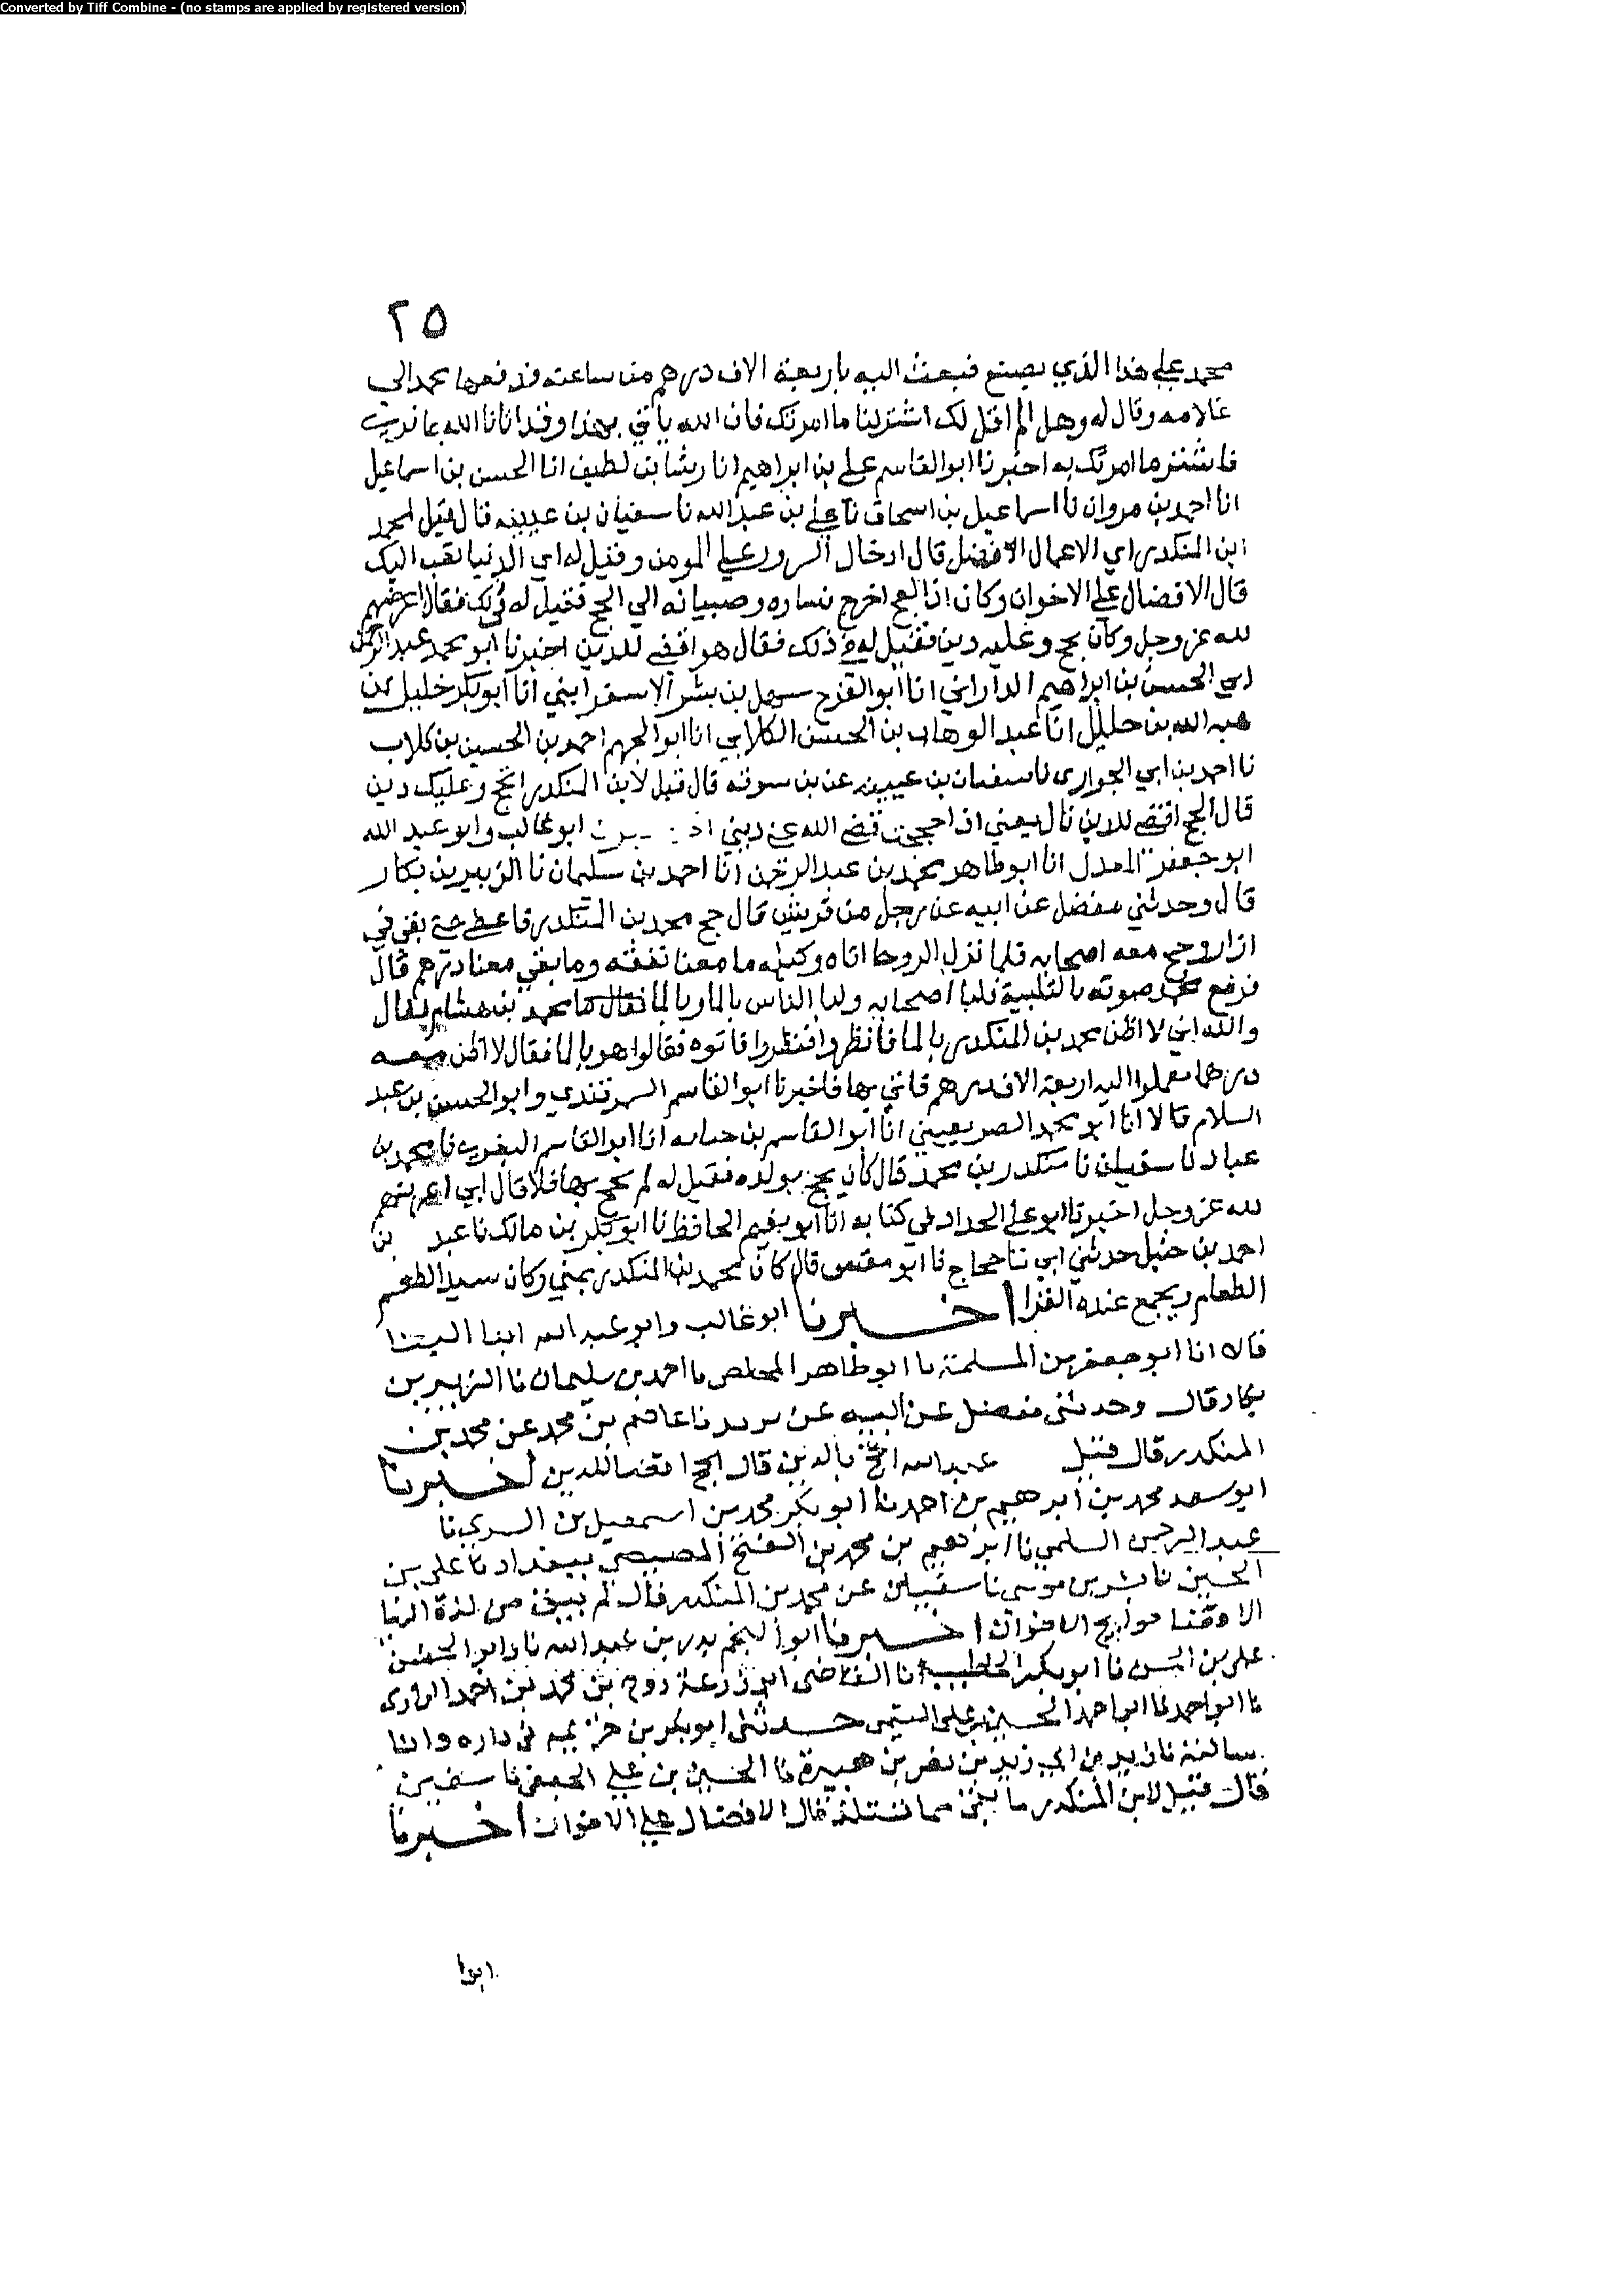 Converted by Tiff Combine - (no stamps are applied by registered version)
٢٥
محمد علي هذا الذي يصنع فبعث اليه باربعة الاف درهم من ساعته فدفعها محمد الي
غلامه وقال له وهل الم اقل لك اشتر لنا ما امرتك فان الله يأتي بهذا وقد اتانا الله بما تري
فاشتر ما امرتك به اخبرنا ابو القاسم علي بن ابراهيم انا رشا بن لطيف انا الحسن بن اسماعيل
انا احمد بن مروان نا اسماعيل بن اسحاق نا علي بن عبد الله نا سفيان بن عيينه قال قيل لمحمد
ابن المنكدر اي الاعمال الافضل قال ادخال السرور علي المومن وقيل له اي الدنيا اليك
قال الافضال علي الاخوان وكان اذا حج اخرج نساره وصبيانه الي الحج فقيل له في ذلك فقال اعرضهم
لله عز وجل وكان يحج وعليه دين فقيل له في ذلك فقال هو اقضي للدين اخبرنا ابو محمد عبد الرحمن
ابن الحسن بن ابراهيم الداراني انا ابو الفرج سهل بن بشر الاسفرايني انا ابو بكر خليل بن
هبه الله بن خليل انا عبد الوهاب بن الحسن الكلابي انا ابو الجهم احمد بن الحسين بن كلاب
نا احمد بن ابي الحواري نا سفيان بن عيينه عن بن سوقه قال قيل لابن المنكدر اتحج وعليك دين
قال الحج اقضي للدين قال يعني اذا حججت قضي الله عني ديني ابو غالب وابو عبد الله
ابو جعفر المعدل انا ابو طاهر محمد بن عبد الرحمن انا احمد بن سليمان نا الزبير بن بكار
قال وحدثني مفضل عن ابيه عن رجل من قريش قال حج محمد بن المنكدر فاعطي حتي بقي في
ازار وحج معه اصحابه فلما نزل الروحا اتاه وكيله ما معنا نفقه وما بقي معنا درهم قال
فرفع محمد صوته بالتلبية فلبا اصحابه ولبا الناس بالما وبالما فقال محمد بن هشام فقال
والله اني لا اظن محمد بن المنكدر بالما فانظروا فنظروا فاتوه فقالوا هو بالما فقال لا اظن معه
درهما احملوا اليه اربعة الاف درهم فاتي بها فاخبرنا ابو القاسم السمرقندي وابو الحسن بن عبد
السلام قالا انا ابو محمد الصريفيني انا ابو القاسم بن حبابه انا ابو القاسم البغوي نا محمد بن
عباد نا سفيان نا منكدر بن محمد قال كان يحج بولده فقيل له لم تحج بها فلا قال ابي اعرضهم
لله عز وجل اخبرنا ابو علي الحداد في كتابه انا ابو نعيم الحافظ نا ابو بكر بن مالك نا عبد بن
احمد بن حنبل حدثني ابي نا حجاج نا ابو قال كان لمحمد بن المنكدر بمني وكان سيد الطعم
الطعام ويجمع عنده القرا اخبرنا ابو غالب وابو عبد الله ابنا البنا
قالا انا ابو جعفر بن المسلمة نا ابو طاهر المخلص نا احمد بن سليمان نا الزبير بن
بكار قال وحدثني مفضل عن ابيه عن نا عاصم بن محمد عن محمد بن
المنكدر قال قيل عبد الله اتحج بالدين قال الحج اقضا للدين اخبرنا
ابو سعد محمد بن ابرهيم بن احمد نا ابو بكر محمد بن اسمعيل بن السري نا
عبد الرحمن السلمي نا ابرهيم بن محمد بن الفتح المصيصي ببغداد نا علي بن
الحسين نا بشر بن موسى نا سفيان عن محمد بن المنكدر قال لم يبق من لذة الدنيا
الا قضا حوايج الاخوان اخبرنا ابو النجم بدر بن عبد الله نا وابو الحسن
علي بن الحسن نا ابو بكر الخطيب انا القاضي ابو زرعة روح بن محمد بن احمد الرازي
نا ابو احمد نا ابو احمد الحسين بن علي التيمي حدثني ابو بكر بن خزيمه في داره وانا
سالته نا زيد بن ابي زيد بن نصر بن هبيرة نا الحسين بن علي الجعفي نا سفين
قال قيل لابن المنكدر ما بقي مما تستلذ قال الافضال علي الاخوان اخبرنا
ابوا